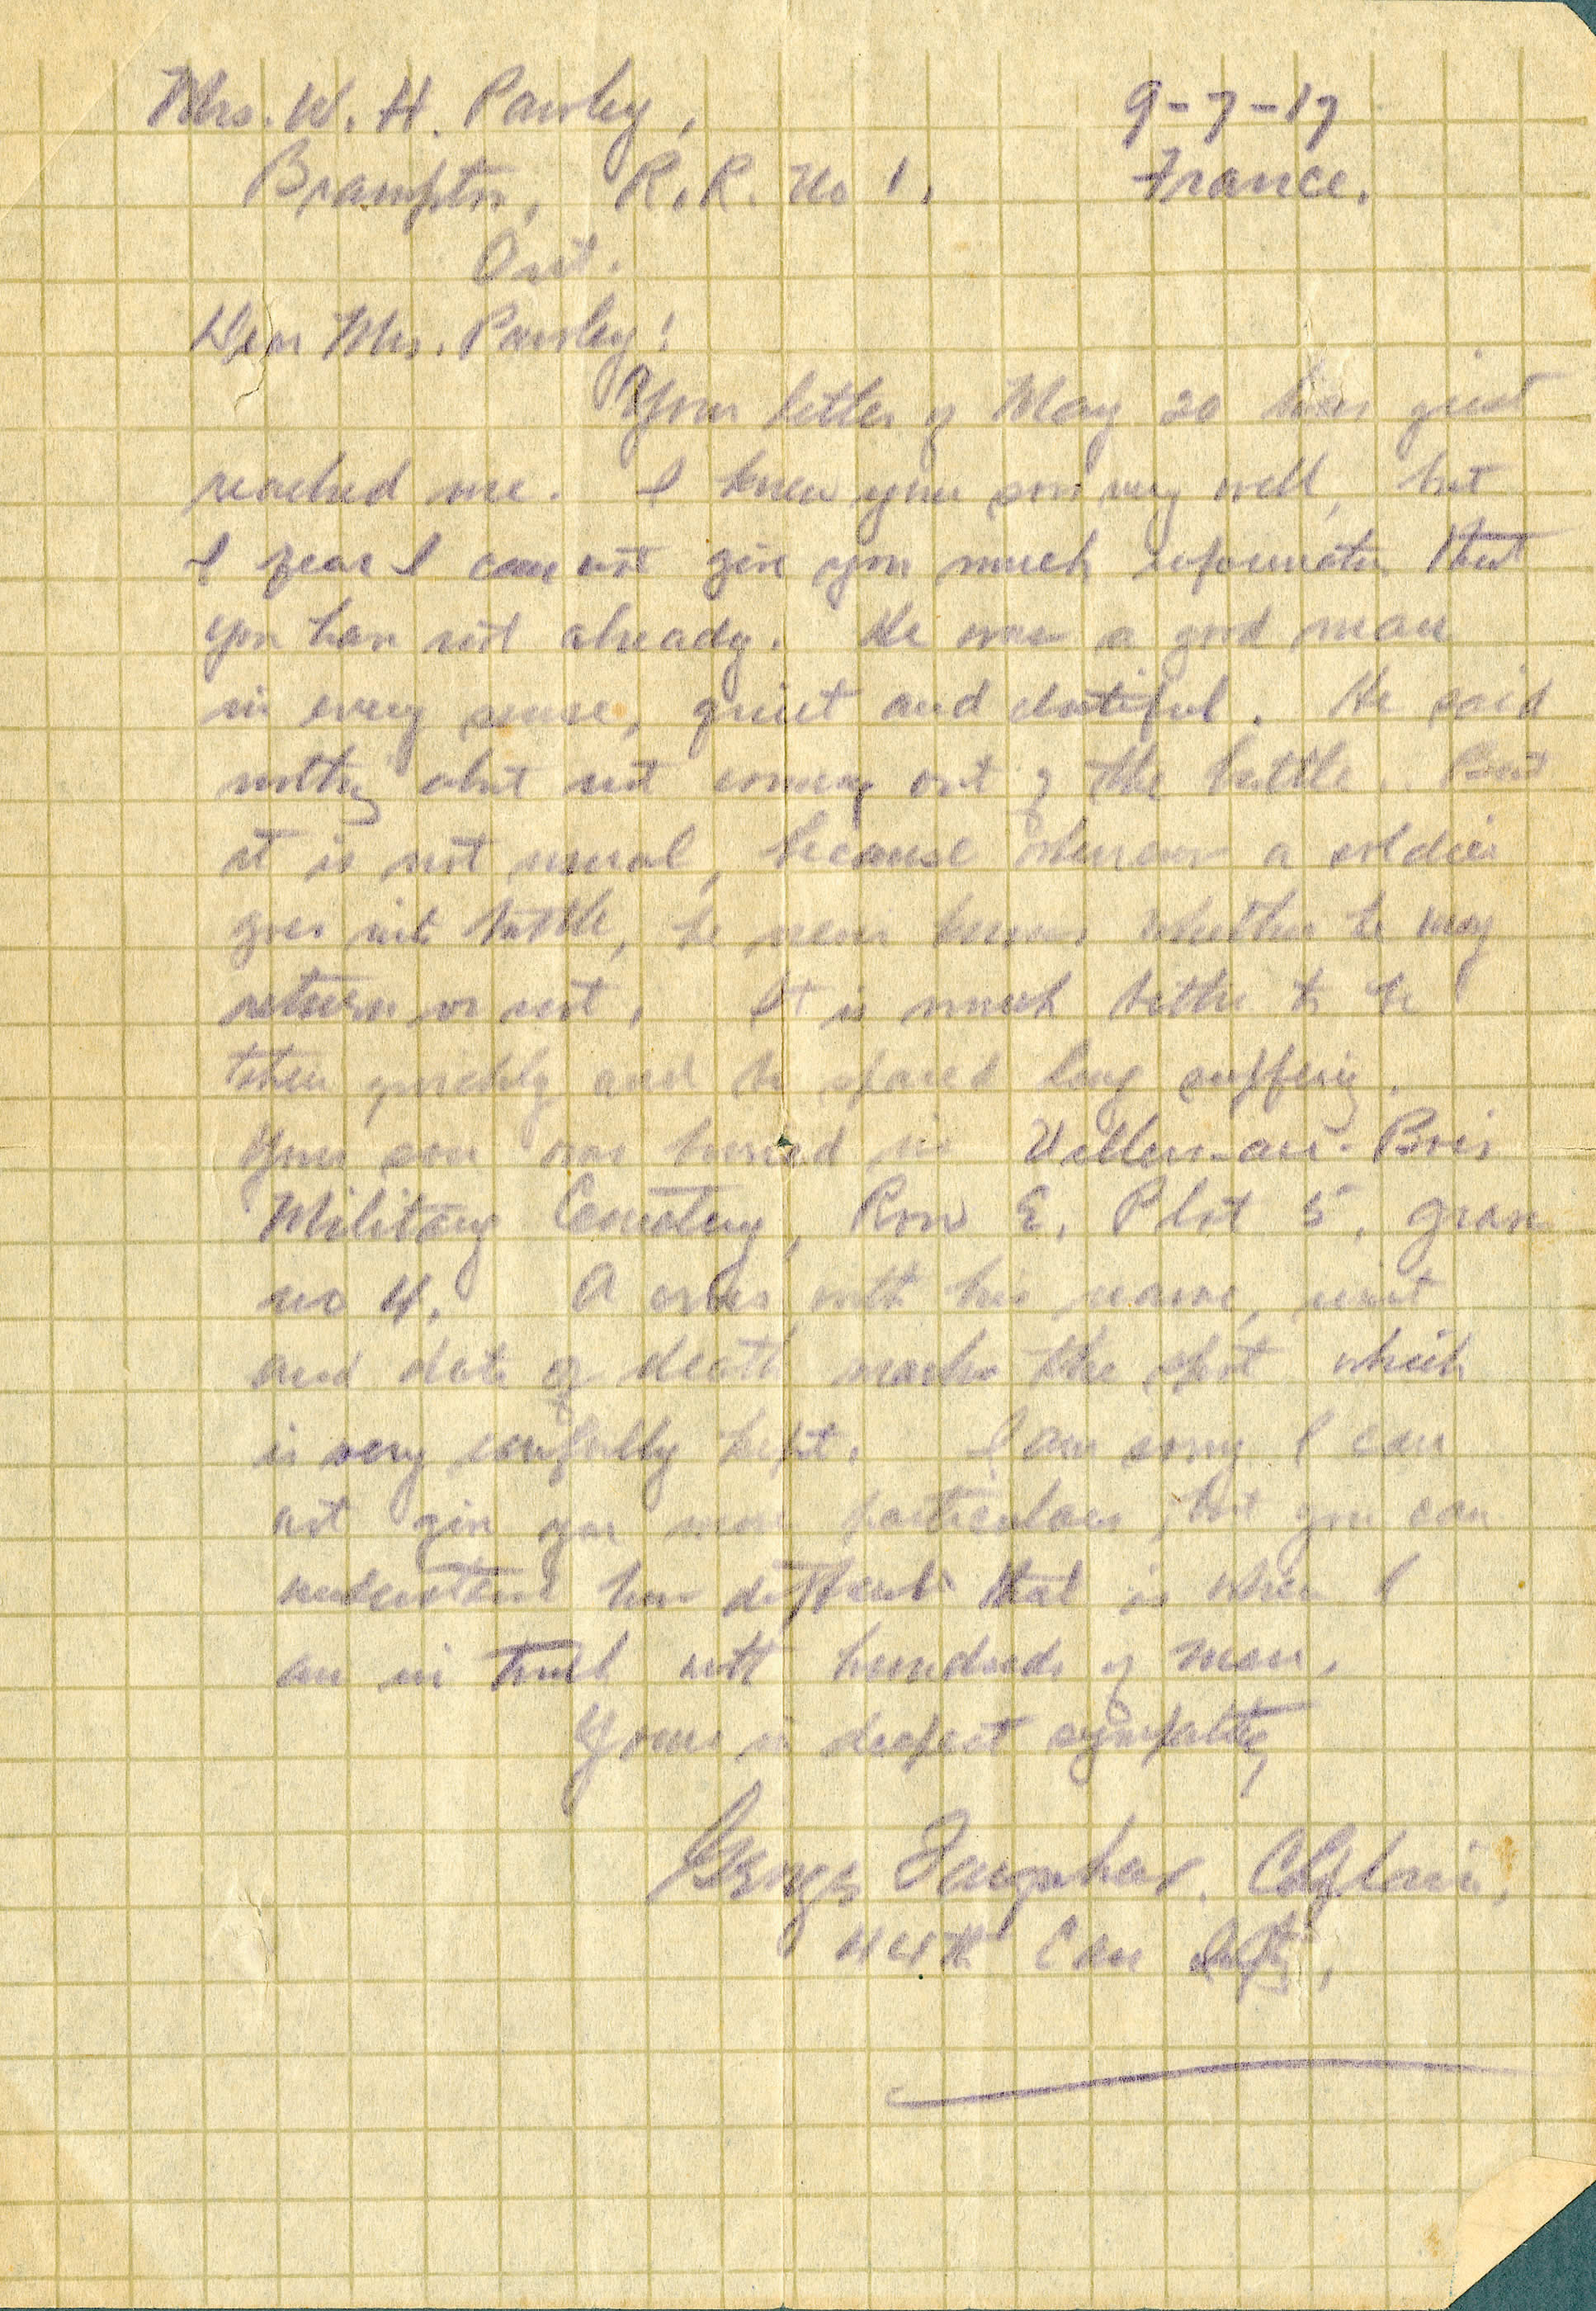 Mrs. W. H. Pawley,
9-7-17
Brampton, R.R. No 1.
France.
Ont.
Dear Mrs. Pawley:
Your letter of May 20 has just
reached me. I knew your son very well, but
I fear I can not give you much information that
you have not already. He was a good man
in every sense, quiet and dutiful. He said
nothing about not coming out of the battle. But
it is not usual, because whenever a soldier
goes into battle, he never knows whether he may
return or not. It is much better to be
taken quickly and be spared long suffering.
Your son was buried in Villers-au-Bois
Military Cemetery, Row E, Plot 5, grave
no 4. A cross with his name, unit
and date of death marks the spot which
is very carefully kept. I am sorry I can
not give you more particulars, but you can
understand how difficult that is when I
am in touch with hundreds of men.
Yours in deepest sympathy,
George Farquhar. Chaplain,
44th Can Inf,